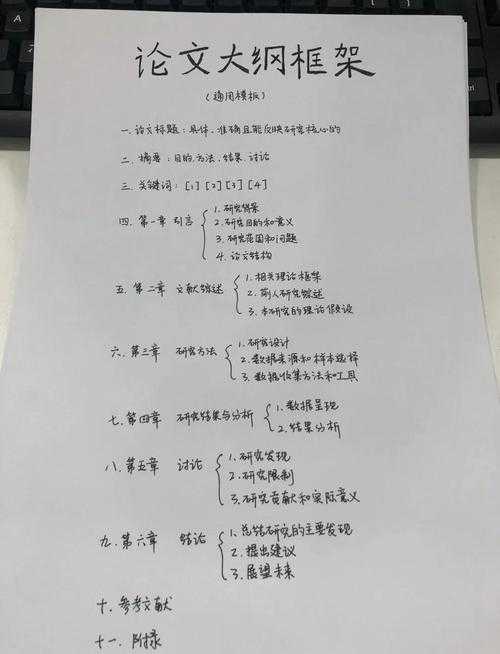 论文大纲框架
(通用模板)
一.论文标题:具体、准确且能反映研究核心的
二.摘要:目的.方法.结果.讨论
三.关键词:[1][2][3][4]
四.第一章 引言
1.研究背景
2.研究目的和意义
3.研究范围和问题
4.论文结构
五.第二章 文献综述
1.相关理论框架
2.前人研究综述
3.本研究的理论假设
六.第三章 研究方法
1.研究设计
2.数据来源和样本选择
3.数据收集方法和工具
七.第四章 研究结果与分析
1.数据呈现
2.结果分析
八.第五章 讨论
1.研究发现
2.研究限制
3.研究贡献和实际意义
九.第六章 结论
1.总结研究的主要发现
2.提出建议
3.展望未来
十.参考文献
十一.附录